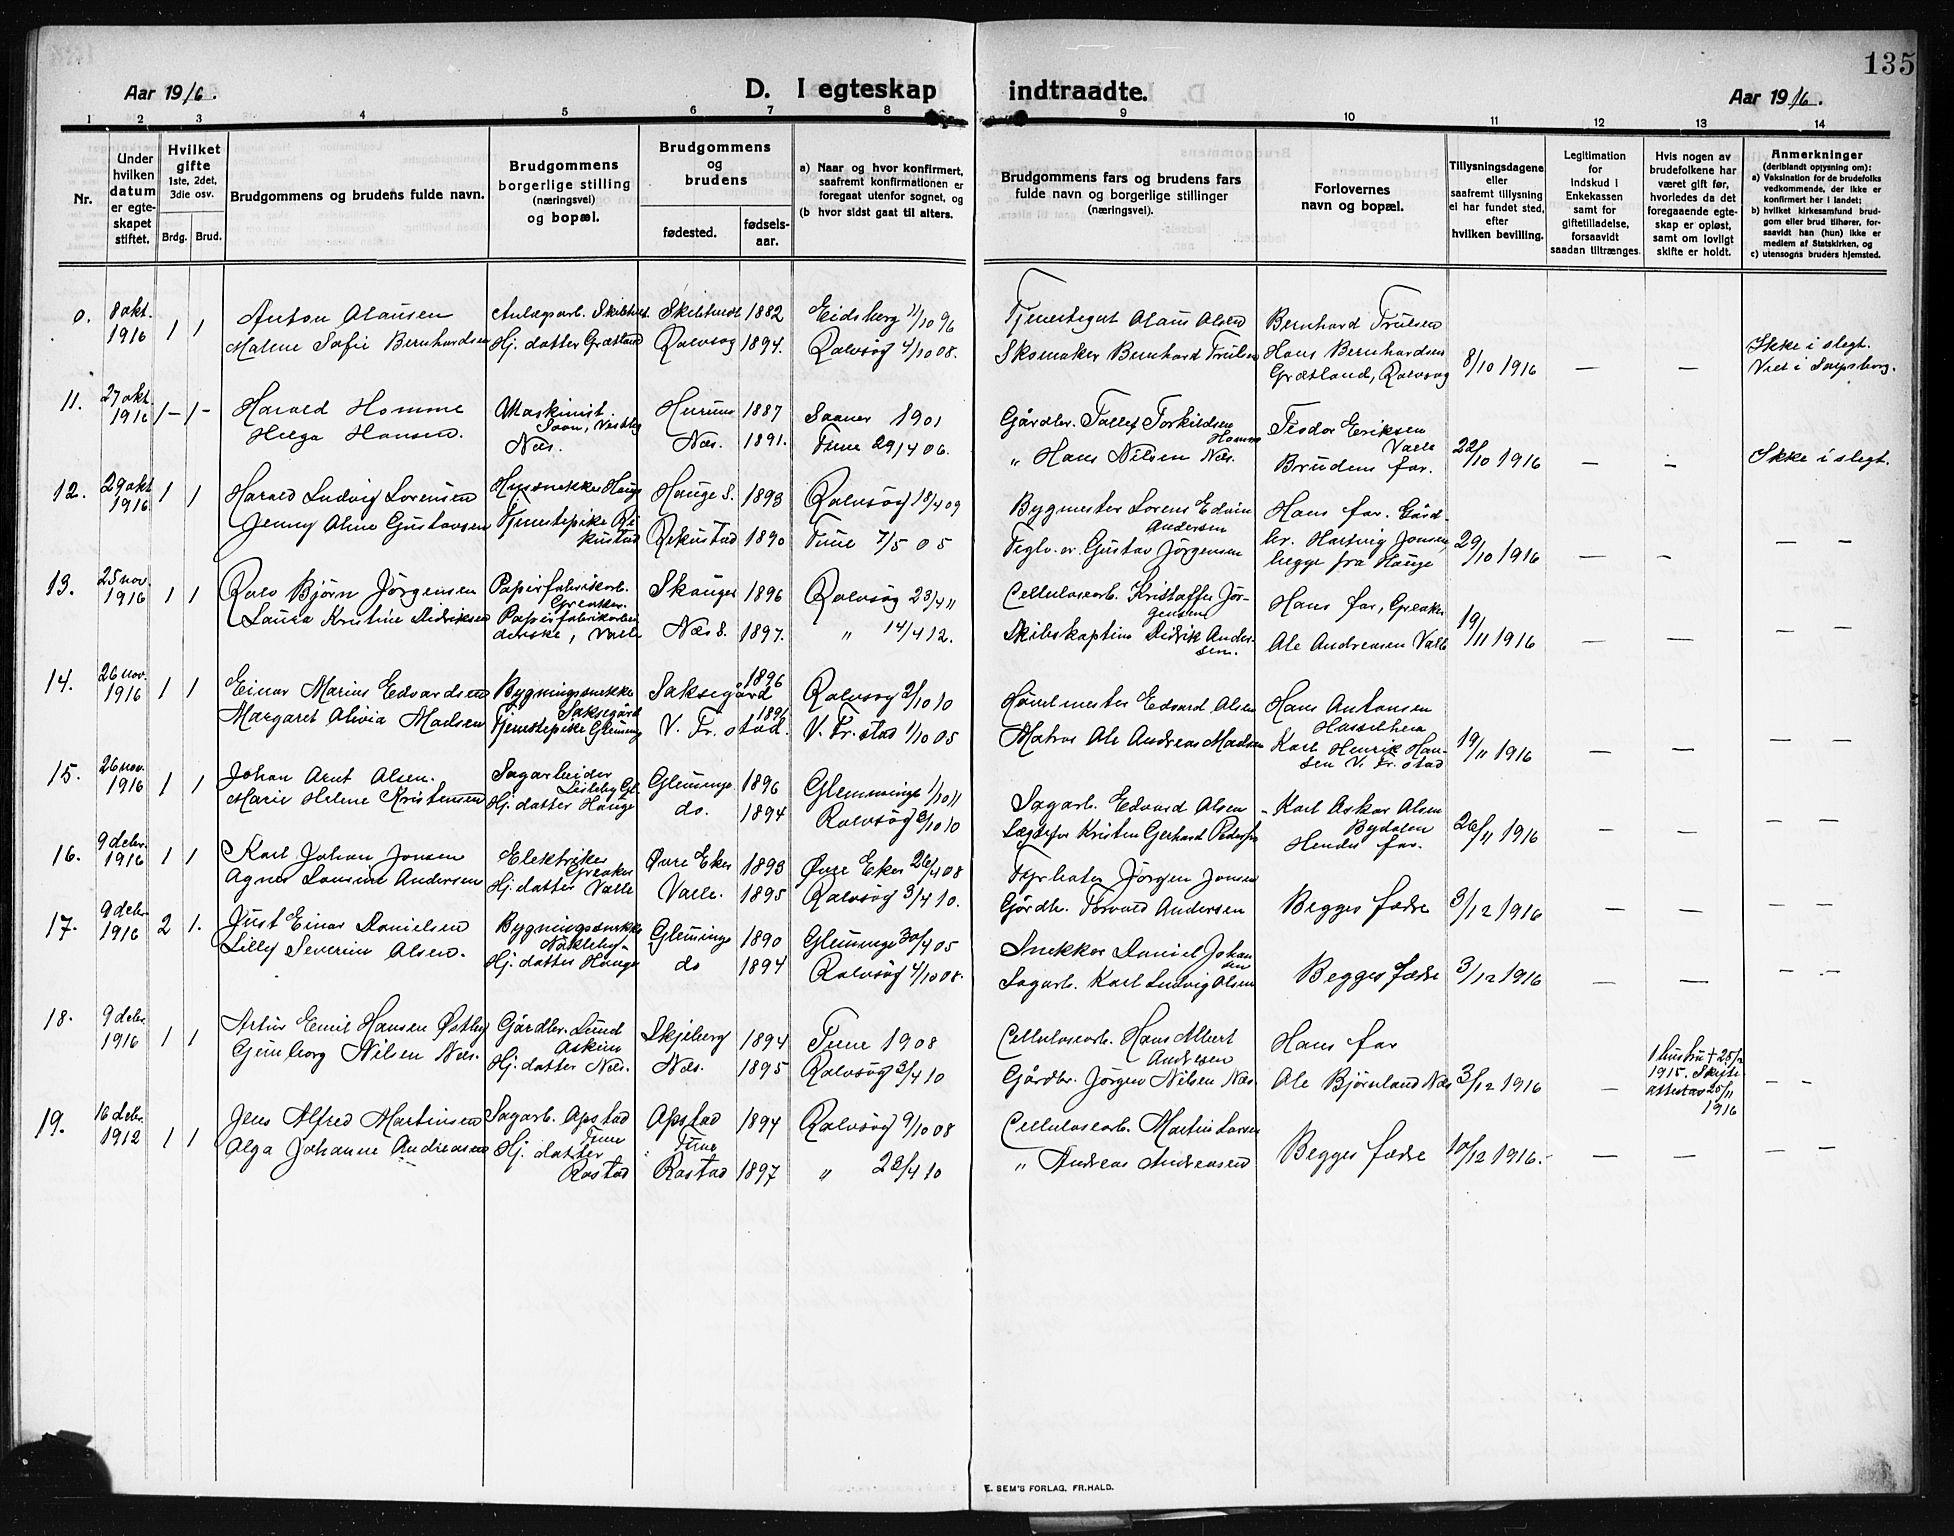 135
Aar 1916.
D. I egteskap indtraadte.
Aar 1916.
1 2 3 4 5 6 7 8 9 10 11 12 13 14
Nr.
Under hvilken datum er egteskapet stiftet.
Hvilket gifte 1ste, 2det, 3die osv.
Brdg. Brud.
Brudgommens og brudens fulde navn.
Brudgommens borgerlige stilling (næringsvei) og bopæl.
Brudgommens og brudens
fødested.
fødselsaar.
a) Naar og hvor konfirmert, saafremt konfirmationen er foregaat utenfor sognet, og
(b hvor sidst gaat til alters.
Brudgommens fars og brudens fars fulde navn og borgerlige stillinger (næringsvei).
Forlovernes navn og bopæl.
Tillysningsdagene eller saafremt tillysning ei har fundet sted, efter hvilken bevilling.
Legitimation for Indskud i Enkekassen samt for giftetilladelse, forsaavidt saadan tiltrænges.
Hvis nogen av brudefolkene har været gift før, hvorledes da det foregaaende egteskap er opløst, samt om lovligt skifte er holdt.
Anmerkninger
(deriblandt opjysning om):
a) Vaksination for de brudefolks vedkommende, der ikke er konfirmert her i landet;
b) hvilket kirkesamfund brudgom eller brud tilhører, forsaavidt han (hun) ikke er medlem af Statskirken, og
c) utensogns bruders hjemsted.
0. 8 okt. 1916 1 1
Anton Olausen Skibthvet 1882 Eidsberg 11/10 96
Malene Sofie Bernhardsen Hj. datter Grætland Rolvsøg 1894. Rolvsøg 4/10 08.
Tjenestegut Olaus Olsen Bernhard Trulsen
Skomaker Bernhard Trulsen Hans Bernhardsen
Grætland, Rolvsøg 8/10 1916 — —
Ikke i slegt.
Viet i Sarpsborg.
11. 27 okt 1916 1- 1-
Harald Homme Maskinist. Soon, Vestby Hurum 1887 Saaner 1901
Helga Hansen. Næs. Næs. 1891. Tune 29/4 06.
Gårdbr. Tallef Torkildsen Homme Teodor Eriksen Valle
" Hans Nilsen Næs. Brudens far. 22/10 1916 — — Ikke i slegt.
12. 29 okt 1916 1 1
Harald Ludvig Lorensen Hussnekker Hauge Hauge S. 1893 Rolvsøg 18/4 09
Jenny Oline Gustavsen Tjenestepike Rekustad Rekustad 1890 Tune 7/5 05
Bygmester Lorens Edvin Andersen Hans far. Gård-
Teglv. er. Gustav Jørgensen br. Hartvig Jonsen,
begge fra Hauge 29/10 1916 — — — —
13. 25 nov. 1916 1 1
Rolv Bjørn Jørgensen Papirfabrikarb. Greaker. Skauger 1896 Rolvsøg 23/4 11
Laura Kristine Didriksen Papirfabrikarbeiderske, Valle Næs S. 1897. " 14/4 12.
Cellulosearb. Kristoffer Jørgensen Hans far, Greaker
Skibskaptein Didrik Andersen. Ole Andreasen Valle 19/11 1916 — — — —
14. 26 nov. 1916 1 1
Einar Marius Edvardsen Bygningssnekker Saksegård Saksegård 1896 Rolvsøg 2/10 10
Margaret Olivia Madsen Tjenestepike Glemming V. Fr. stad. 1891 V. Fr. stad 1/10 05
Edvard Olsen Hans Antonsen Hasselheia
Matros Ole Andreas Madsen Karl Henrik Han-
sen V. Fr. stad 19/11 1916 — — — —
15. 26 nov. 1916 1 1
Johan Arnt Olsen. Sagarbeider Lisleby Gl. Glemminge 1896 Glemminge 1/10 11
Marie Helene Kristensen Hj. datter Hauge do. 1894 Rolvsøg 2/10 10
Sagarb. Edvard Olsen - Karl Oskar Olsen Bydalen
Kristen Gerhard Pedersen Hendes far. 26/11 1916 — — — —
16. 9 debr. 1916 1 1
Karl Johan Jonsen Elektriker Greaker Øvre Eker 1893 Øvre Eker 26/4 08
Agnes Lovise Andersen Hj. datter Valle Valle. 1895 Rolvsøg 3/4 10.
Fyrbøter Jørgen Jonsen
Gårdbr. Torvald Andersen Begges fædre 3/12 1916 — — — —
17. 9 debr. 1916 2 1.
Just Einar Danielsen Bygningssnekker Nøkleby- Glemminge 1890 Glemminge 30/4 05
Lilly Severine Olsen. Hj. datter Hauge do 1894 Rolvsøg 4/10 08.
Snekker Daniel Johansen
Sagarb. Karl Ludvig Olsen Begges fædre 3/12 1916 — — — —
18. 9 debr. 1916 1 1
Artur Emil Hansen Østby Gårdbr. Lund Askim Skjeberg 1894 Tune 1908
Gunborg Nilsen Næs. Hj. datter Næs. Næs. 1895 Rolvsøg 3/4 10
Cellulosearb. Hans Albert Andresen Hans far
Gårdbr. Jørgen Nilsen Næs. Ole Bjørnland Næs 3/12 1916 —
1 hustru † 25/2 1915. Skifte attestav 25/11 1916
— —
19. 16 debr. 1912 1 1
Jens Alfred Martinsen Sagarb. Opstad Tune Opstad Tune 1894 Rolvsøg 9/10 08
Olga Johanne Andreasen Hj. datter Rostad Rostad 1897 " 28/4 10
Cellulosearb. Martin Larsen
" Andreas Andreasen Begges fædre 10/12 1916. — — — —
E. SEM'S FORLAG, FR.HALD.